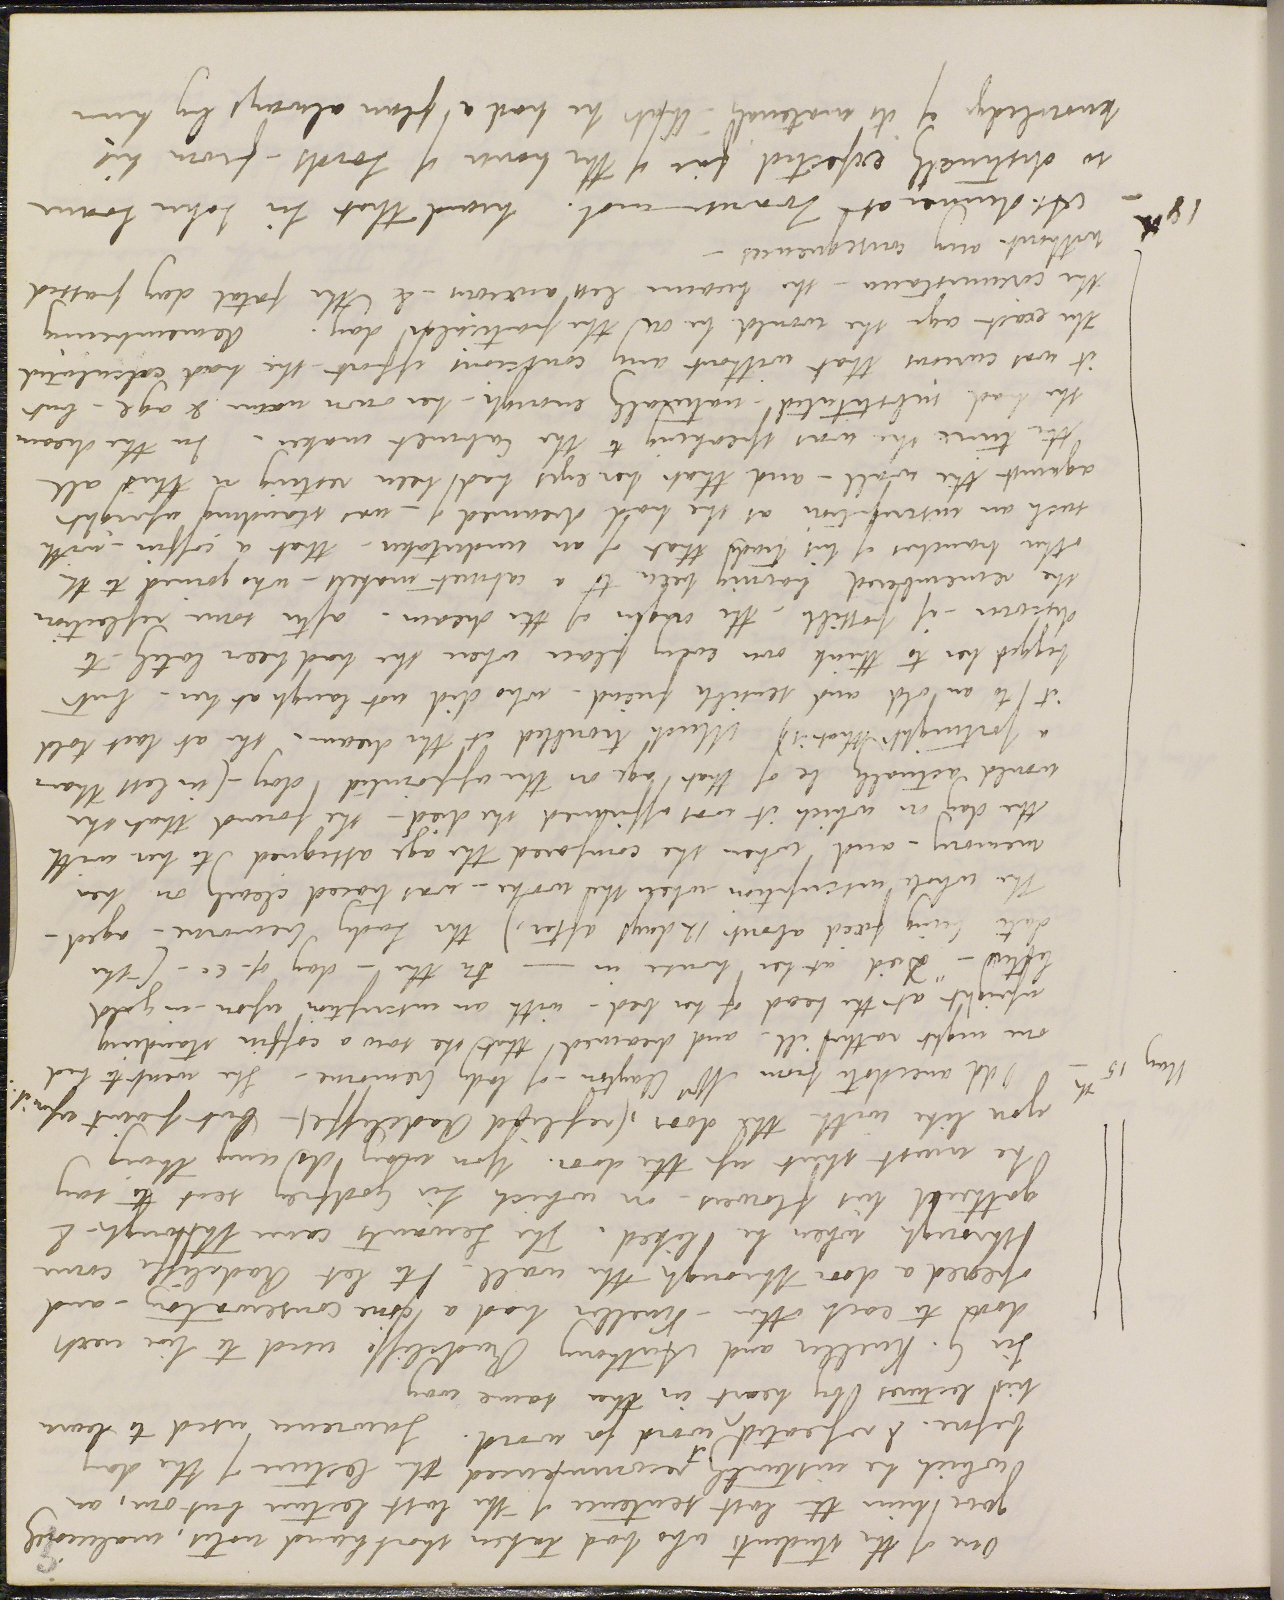 One of the students who had taken short hand notes, maliciously
gave him the last sentence of the last lecture but one, on
which he instantly recommenced the lecture of the day
before. & repeated it word for word. Lawrence used to learn
his lectures by heart in the same way
Sir G. Kneller and Anthony Radcliffe used to live next
door to each other - Kneller had a fine conservatory - and
opened a door through the wall - to let Radcliffe come
through when he liked. The Servants came through - &
gathered his flowers - on which Sir Godfrey sent to say
he must shut up the door. You may do any thing
you like with the door, (replied Radcliffe) - but paint upon it.
May 15th - Odd anecdote from Mrs Clayton - of lady Cremorne - She went to bed
one night rather ill - and dreamed that she saw a coffin standing
upright at the head of her bed - with an inscription upon - in gold
letters - "Died at her house in — On the - day of - &c - (the
date being fixed about 12 days after,) the Lady Cremorne - aged -
The whole inscription when she woke - was traced clearly on her
memory - and when she compared the age assigned to her with
the day on which it was affirmed she died - she found that she
would actually be of that age on the appointed day - (in less than
a fortnight that is) Much troubled at the dream - she at last told
it to an old and sensible friend - who did not laugh at her - but
begged her to think over every place where she had been lately - to
discover - if possible - the origin of the dream - after some reflection
she remembered having been to a cabinet makers - who joined to the
other branches of his trade that of an undertaker - that a coffin - with
such an inscription as she had dreamed of - was standing upright
against the wall - and that her eyes had been resting on this all
the time she was speaking to the Cabinet maker - In the dream
she had substituted - naturally enough - her own name & age - but
it was curious that without any conscious effort - she had calculated
the exact age she would be on the particular day. Remembering
the circumstance - she became less anxious - & the fatal day passed
without any consequences -
18th - At dinner at heard that Sir John Soane
so distinctly expected fire of the house of Lords - from his
knowledge of its materials - that he had a plan always by him